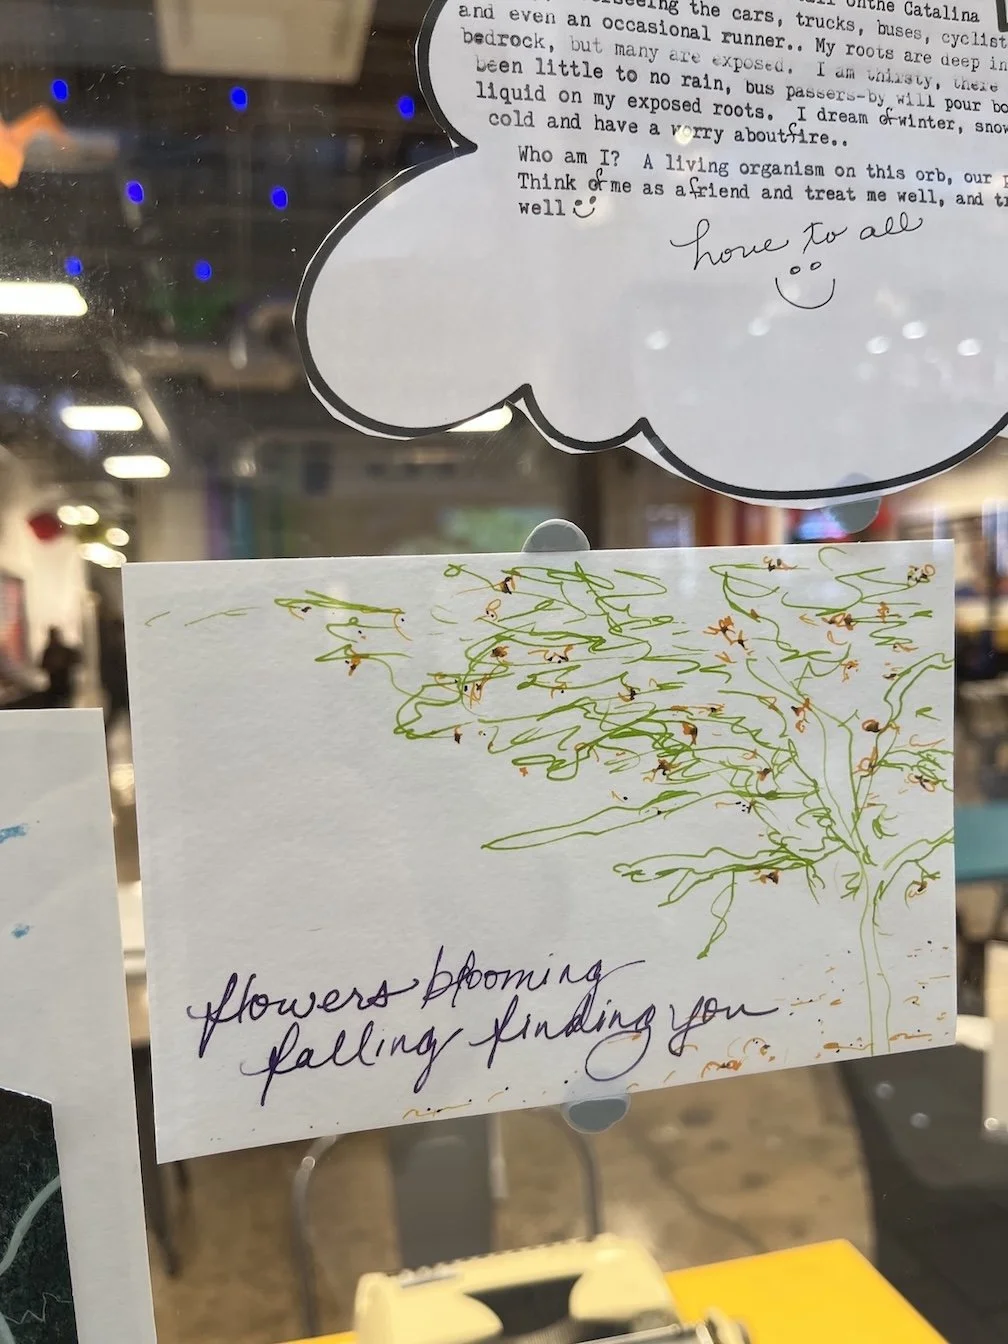 onthe Catalina
the cars, trucks, buses, cyclist
and even an occasional runner.. My roots are deep in
bedrock, but many are exposed. I am thirsty, there
been little to no rain, bus passers-by will pour bo
liquid on my exposed roots. I dream of winter, snow
cold and have a worry aboutfire..
Who am I? A living organism on this orb, our
Think of me as a friend and treat me well, and tr
well
Love to all
flowers blooming
falling finding you